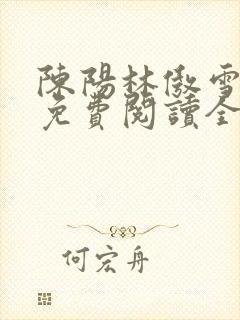 陳陽林傲雪
免費閱讀全
何宏舟